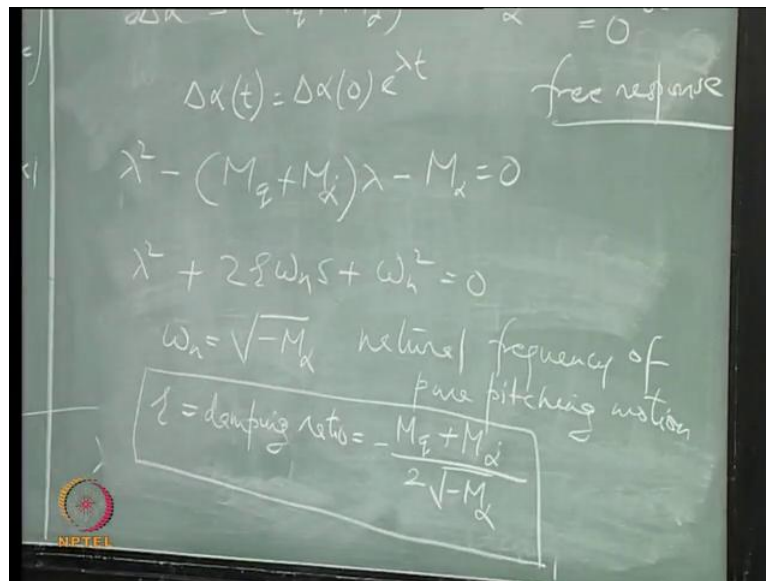 Δα̈ − (M_q + M_α̇) α = 0
Δα(t) = Δα(0) e^{λt} free response
λ² − (M_q + M_α̇)λ − M_α = 0
λ² + 2ζω_n s + ω_n² = 0
ω_n = √−M_α natural frequency of
pure pitching motion
ζ = damping ratio = − (M_q + M_α̇) / 2√−M_α
NPTEL